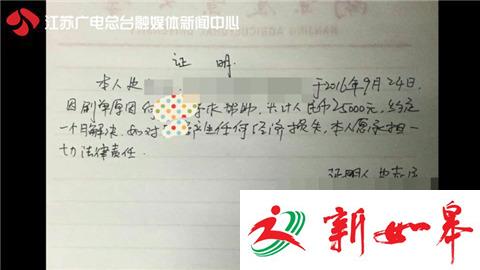 江苏广电总台融媒体新闻中心
NANJING AGRICULTURAL
证 明
本人
于2016年9月24日,
因刷单原因向 寻求帮助,共计人民币25000元,约定
一个月解决.如对 产生任何经济损失,本人愿承担一
切法律责任.
证明人
新如皋